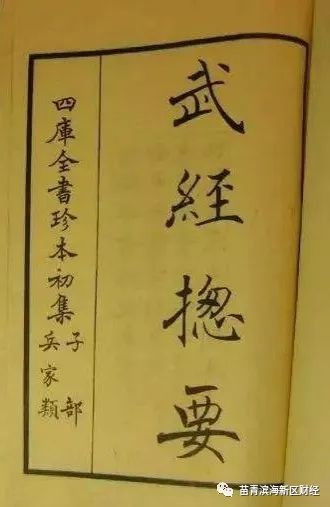 武經揔要
四庫全書珍本初集
子部
兵家類
苗青滨海新区财经